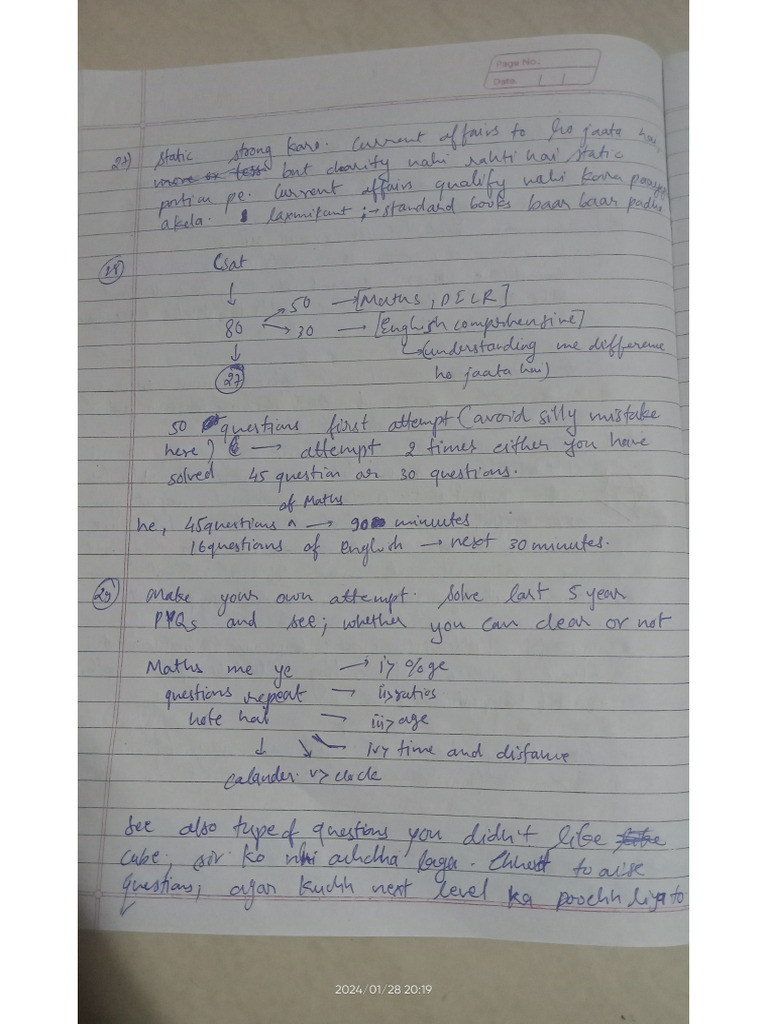 Page No.:
Date: | |
27) static strong karo. Current affairs to ho jaata hai,
more or less but clarity nahi rahti hai static
portion pe. Current affairs qualify nahi kara
akela. laxmikant ;→ standard books baar baar padho
28) Csat
↓
80 → 50 → [Maths, DI LR]
→ 30 → [English comprehensive]
↳ (understanding me difference
ho jaata hai)
↓
27
50 questions first attempt (avoid silly mistake
here) → attempt 2 times either you have
solved 45 question or 30 questions.
he, 45 questions of Maths → 90 minutes
16 questions of English → next 30 minutes.
29) make your own attempt. Solve last 5 year
PYQs and see; whether you can clear or not
Maths me ye → i> %ge
questions repeat → ii> ratios
hote hai → iii> age
iv> time and distance
calander. v> clock
See also type of questions you didn't like
cube, sir ko nhi achcha laga. to aise
questions, agar kuchh next level ka poochh liya to
2024/01/28 20:19